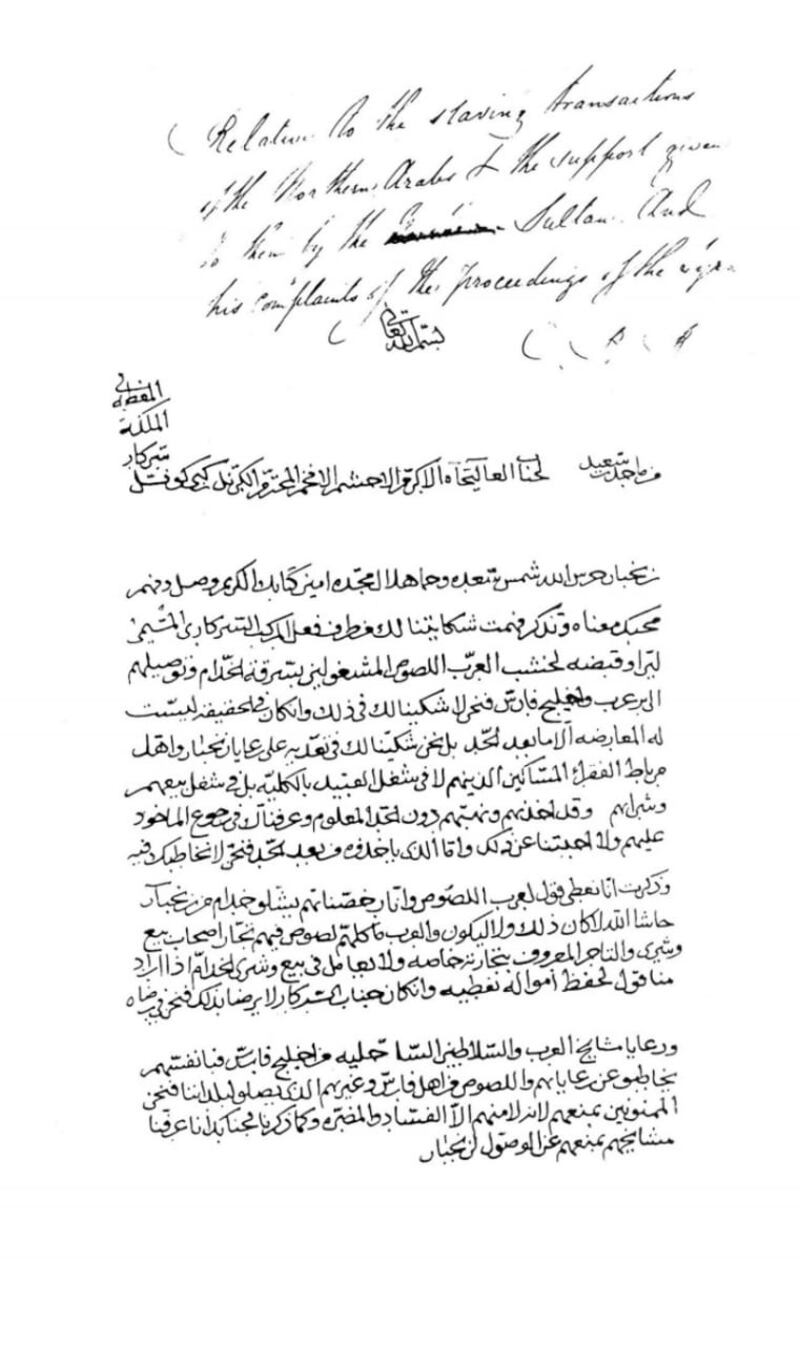 (Relative to the slaving transactions
of the Northern Arabs & the support given
to them by the Sultan. And
his complaints of the proceedings of the
بسم الله تعالى
المعظمه
الملكة
سركار
من ماجد بن سعيد لجناب العاليجاه الاكرم الاحشم الافخم المحترم الكرنل كونسل
زنجبار حرس الله شمس سعده وحماه المجده امين كتابك الكريم وصل وفهم
محبك معناه وتذكر فهمت شكايتنا لك من طرف فعل المركب السركاري المسمى
وقبضه لخشب العرب اللصوص المشغولين بسرقة الخدام وتوصيلهم
الى بر عرب والخليج فارس فنحن لا شكينا لك في ذلك وانكان في الحقيقه ليست
له المعارضه الا ما بعد الحد بل نحن شكينا لك في تعديه على رعايا زنجبار واهل
مرباط الفقراء المساكين الذينهم لا في شغل العبيد بالكليه بل في شغل بيعهم
وشرائهم وقد اخذهم ونهبهم دون الحد المعلوم وعرفناك في رجوع الماخوذ
عليهم ولا اجبتنا عن ذلك واما الذي ياخذه من بعد الحد فنحن لا نخاطبك فيه
وذكرت انا نعطي قول لعرب اللصوص وانا رخصناهم يشلو خدام من زنجبار
حاشا الله لا كان ذلك ولا يكون والعرب ما كلهم لصوص فيهم تجار اصحاب بيع
وشرى والتاجر المعروف بتجارته خاصه ولا يعامل في بيع وشرى الخدام اذا اراد
منا قول لحفظ امواله نعطيه وانكان جناب السركار لا يرضا بذلك فنحن في رضاه
ورعايا مشايخ العرب والسلاطين الساحليه من الخليج فارس فبانفسهم
يخاطبو عن رعاياهم واللصوص من اهل فارس وغيرهم الذي يصلو لبلداننا فنحن
الممنونين بمنعهم لانه لا منهم الا الفساد والمضره وكما ذكرنا لجنابك انا عرفنا
مشايخهم بمنعهم عن الوصول لزنجبار